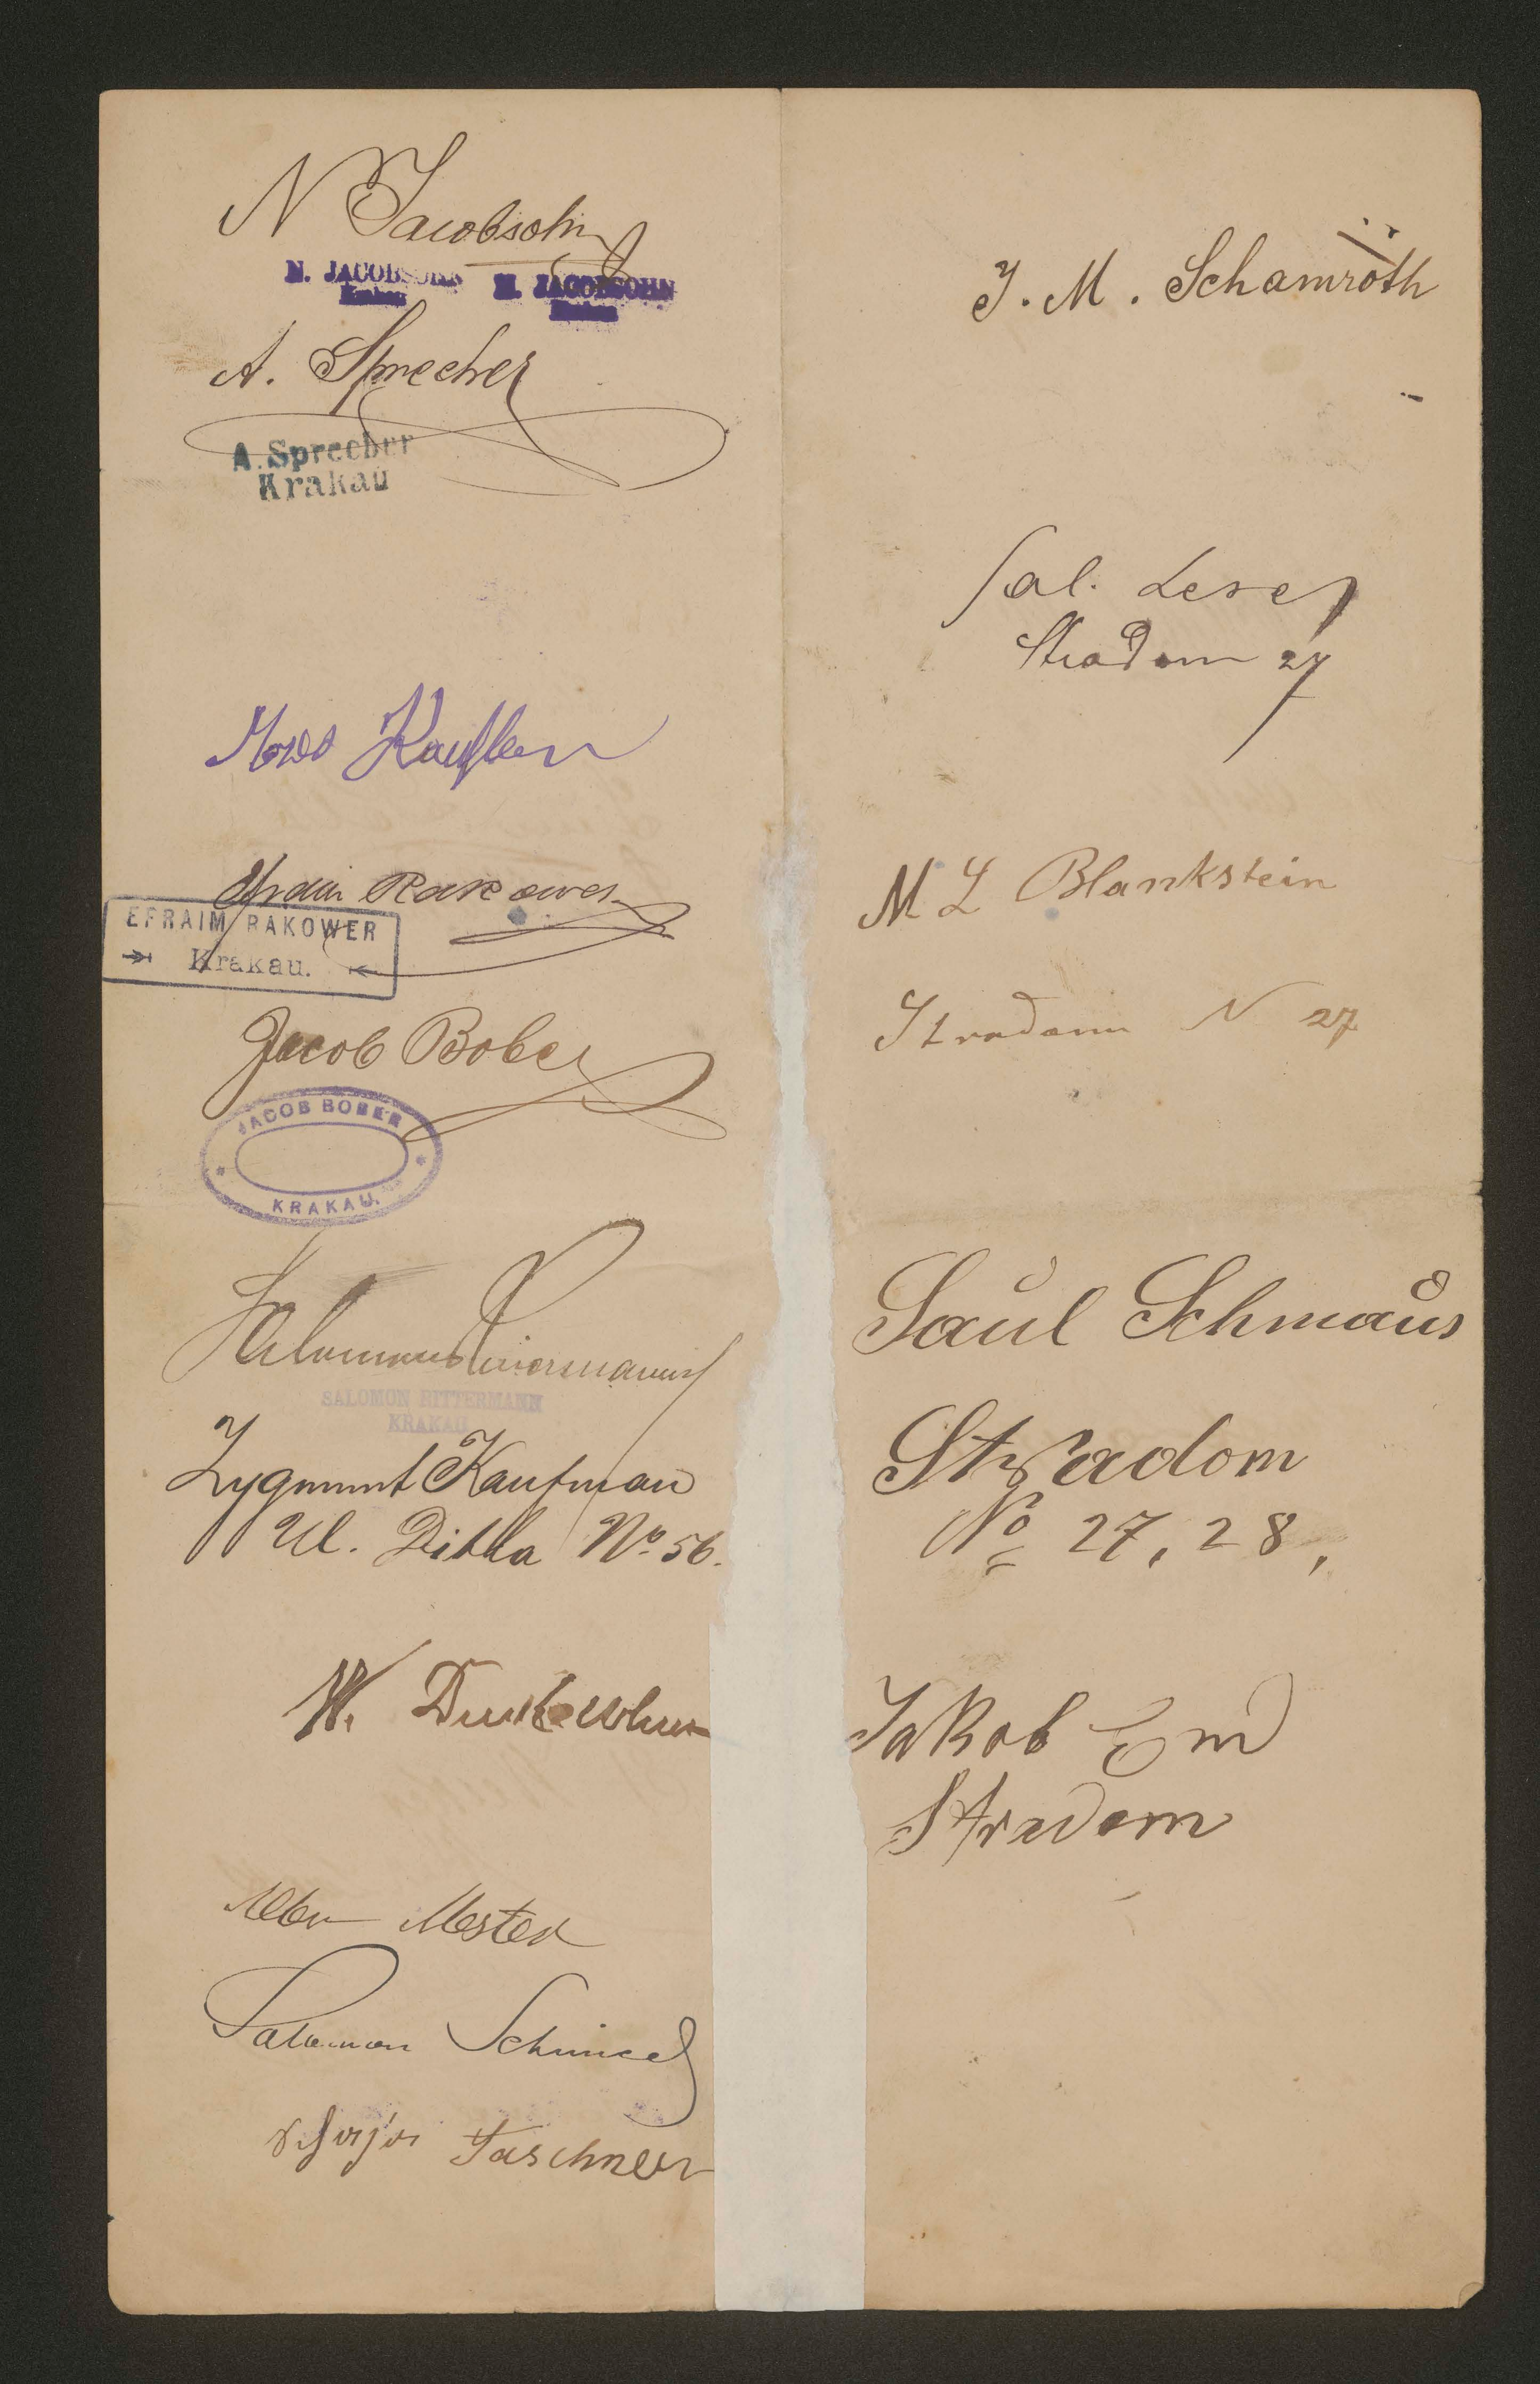 N Jacobsohn
N. JACOBSOHN N. JACOBSOHN
Krakau Krakau
A. Sprecher
A. Sprecher
Krakau
Efraim Rakower
EFRAIM RAKOWER
Krakau.
Jacob Bober
JACOB BOBER
KRAKAU.
Salomon Rittermann
SALOMON RITTERMANN
KRAKAU
Zygmunt Kaufman
Ul. Ditla No. 56.
W.
Mester
Salomon
Taschner
J. M. Schamroth
Sal. Leser
Stradom 27
M L Blankstein
Stradom N 27
Saul Schmaus
Stradom
No 27, 28,
Jakob
Stradom